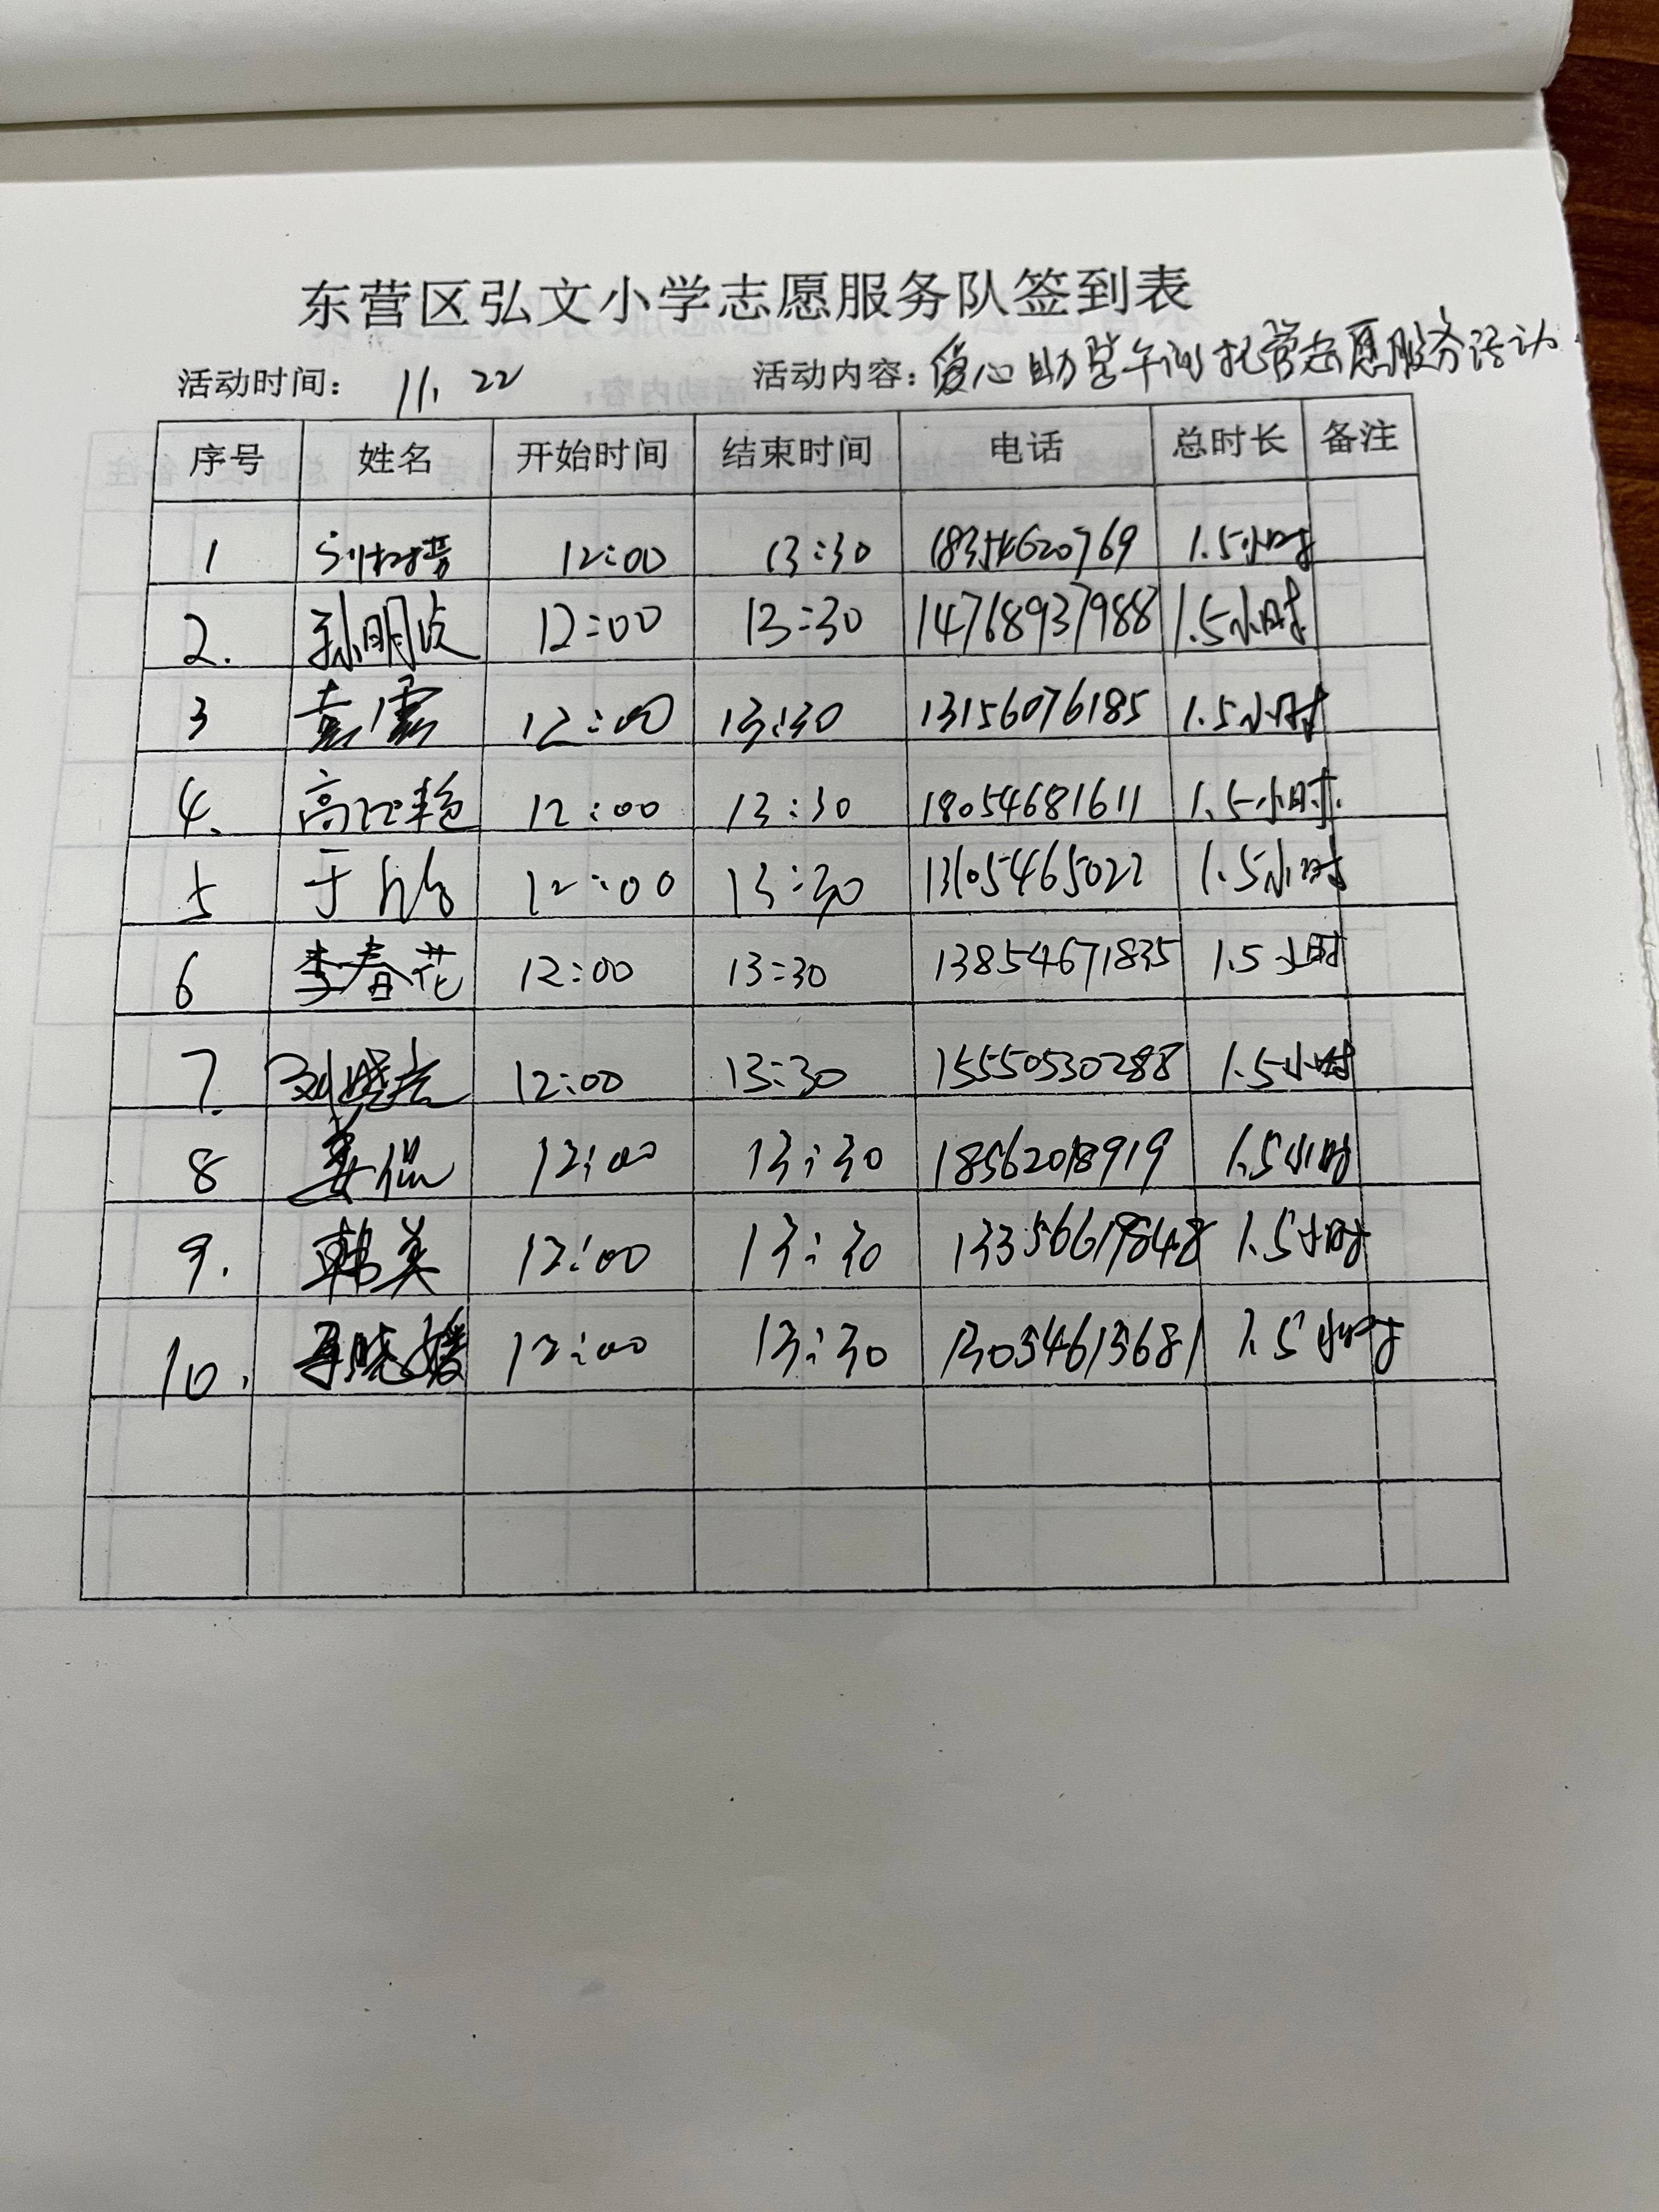 东营区弘文小学志愿服务队签到表
活动时间： 11. 22 活动内容：爱心助学午间托管志愿服务活动
序号 姓名 开始时间 结束时间 电话 总时长 备注
1 12:00 13:30 18354620769 1.5小时
2. 孙明 12:00 13:30 14768937988 1.5小时
3 袁雪 12:00 13:30 13156076185 1.5小时
4. 高江艳 12:00 13:30 18054681611 1.5小时.
5 于 12:00 13:30 13105465022 1.5小时
6 李春花 12:00 13:30 13854671835 1.5小时
7. 刘晓 12:00 13:30 15550530288 1.5小时
8 姜 12:00 13:30 18562018919 1.5小时
9. 韩美 12:00 13:30 13356619848 1.5小时
10. 晓媛 12:00 13:30 13054613681 1.5小时